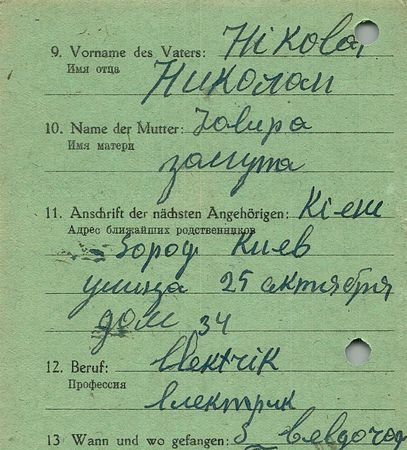 9. Vorname des Vaters: Nikola,
Имя отца Николай
10. Name der Mutter:
Имя матери
11. Anschrift der nächsten Angehörigen: Kiew
Адрес ближайших родственников
Город Киев
улица 25 октября
дом 34
12. Beruf: Elektrik
Профессия
Електрик
13 Wann und wo gefangen: Belgorod